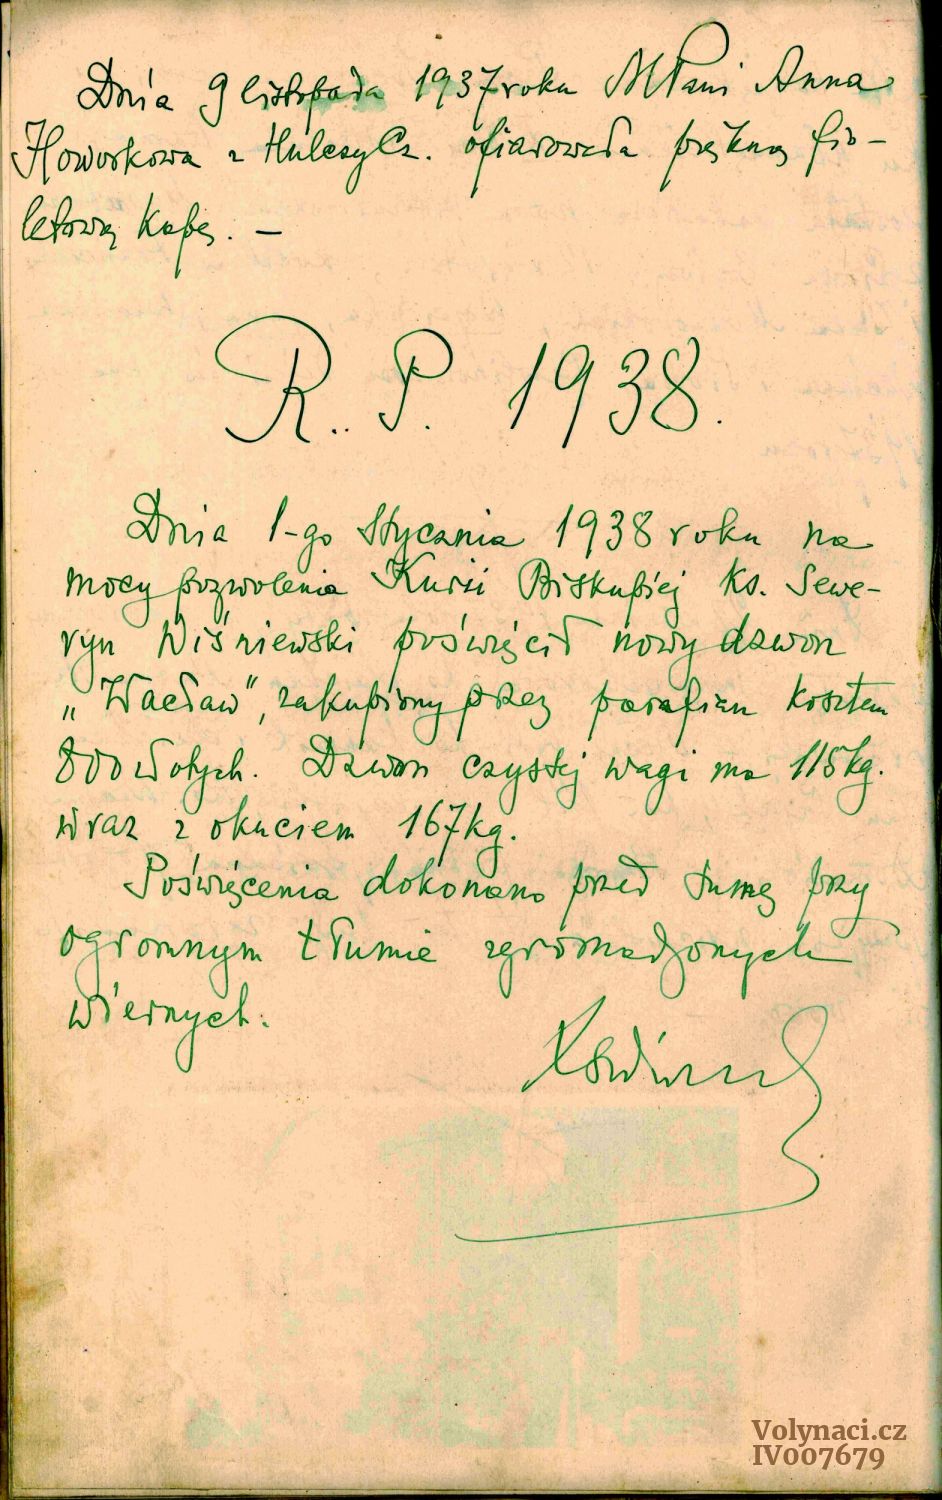 Dnia 9 listopada 1937 roku WPani Anna
Howorkowa z Hulczy Cz. ofiarowała piękną fio-
letową kapę. —
R. P. 1938.
Dnia 1-go Stycznia 1938 roku na
mocy pozwolenia Kurii Biskupiej ks. Sewe-
ryn Wiśniewski poświęcił nowy dzwon
„Wacław”, zakupiony przez parafian kosztem
800 złotych. Dzwon czystej wagi ma 115 kg.
wraz z okuciem 167 kg.
Poświęcenia dokonano przed sumą przy
ogromnym tłumie zgromadzonych
wiernych.
Volynaci.cz
IV007679